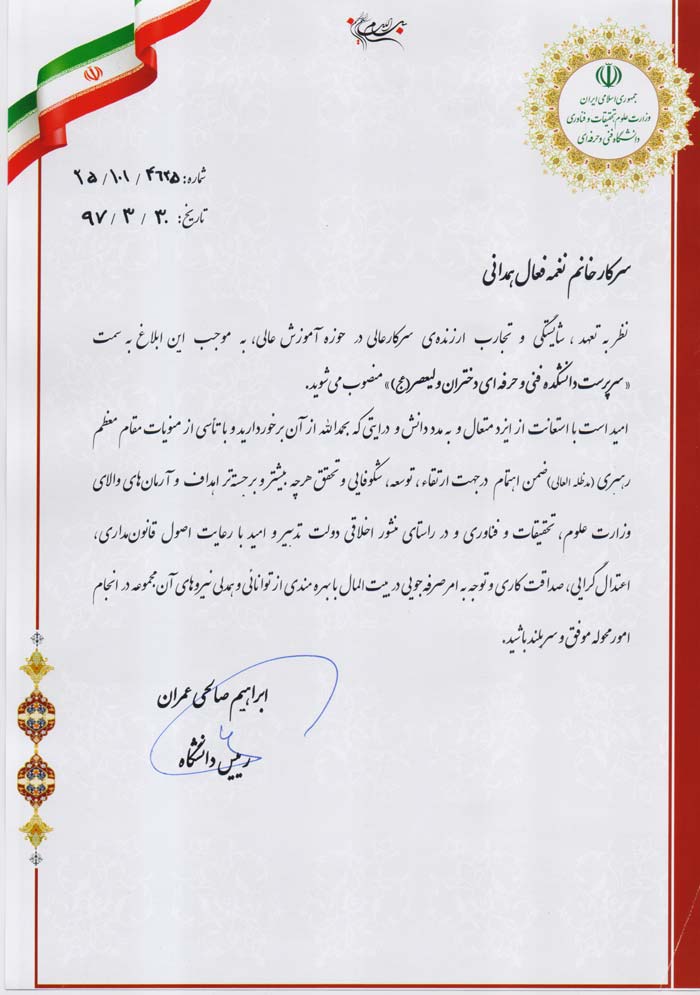 بسم الله الرحمن الرحیم
جمهوری اسلامی ایران
وزارت علوم، تحقیقات و فناوری
دانشگاه فنی و حرفه ای
شماره: ۲۵/۱۰۱/۴۶۲۵
تاریخ: ۹۷/۳/۳۰
سرکار خانم نغمه فعال همدانی
نظر به تعهد، شایستگی و تجارب ارزنده‌ی سرکارعالی در حوزه آموزش عالی، به موجب این ابلاغ به سمت
«سرپرست دانشکده فنی و حرفه ای دختران ولیعصر(عج)» منصوب می‌شوید.
امید است با استعانت از ایزد متعال و به مدد دانش و درایتی که بحمدالله از آن برخوردارید و با تأسی از منویات مقام معظم
رهبری (مدظله العالی) ضمن اهتمام در جهت ارتقاء، توسعه، شکوفایی و تحقق هرچه بیشتر و برجسته‌تر اهداف و آرمان‌های والای
وزارت علوم، تحقیقات و فناوری و در راستای منشور اخلاقی دولت تدبیر و امید با رعایت اصول قانون‌مداری،
اعتدال گرایی، صداقت کاری و توجه به امر صرفه جویی در بیت المال با بهره مندی از توانائی و همدلی نیروهای آن مجموعه در انجام
امور محوله موفق و سربلند باشید.
ابراهیم صالحی عمران
رییس دانشگاه